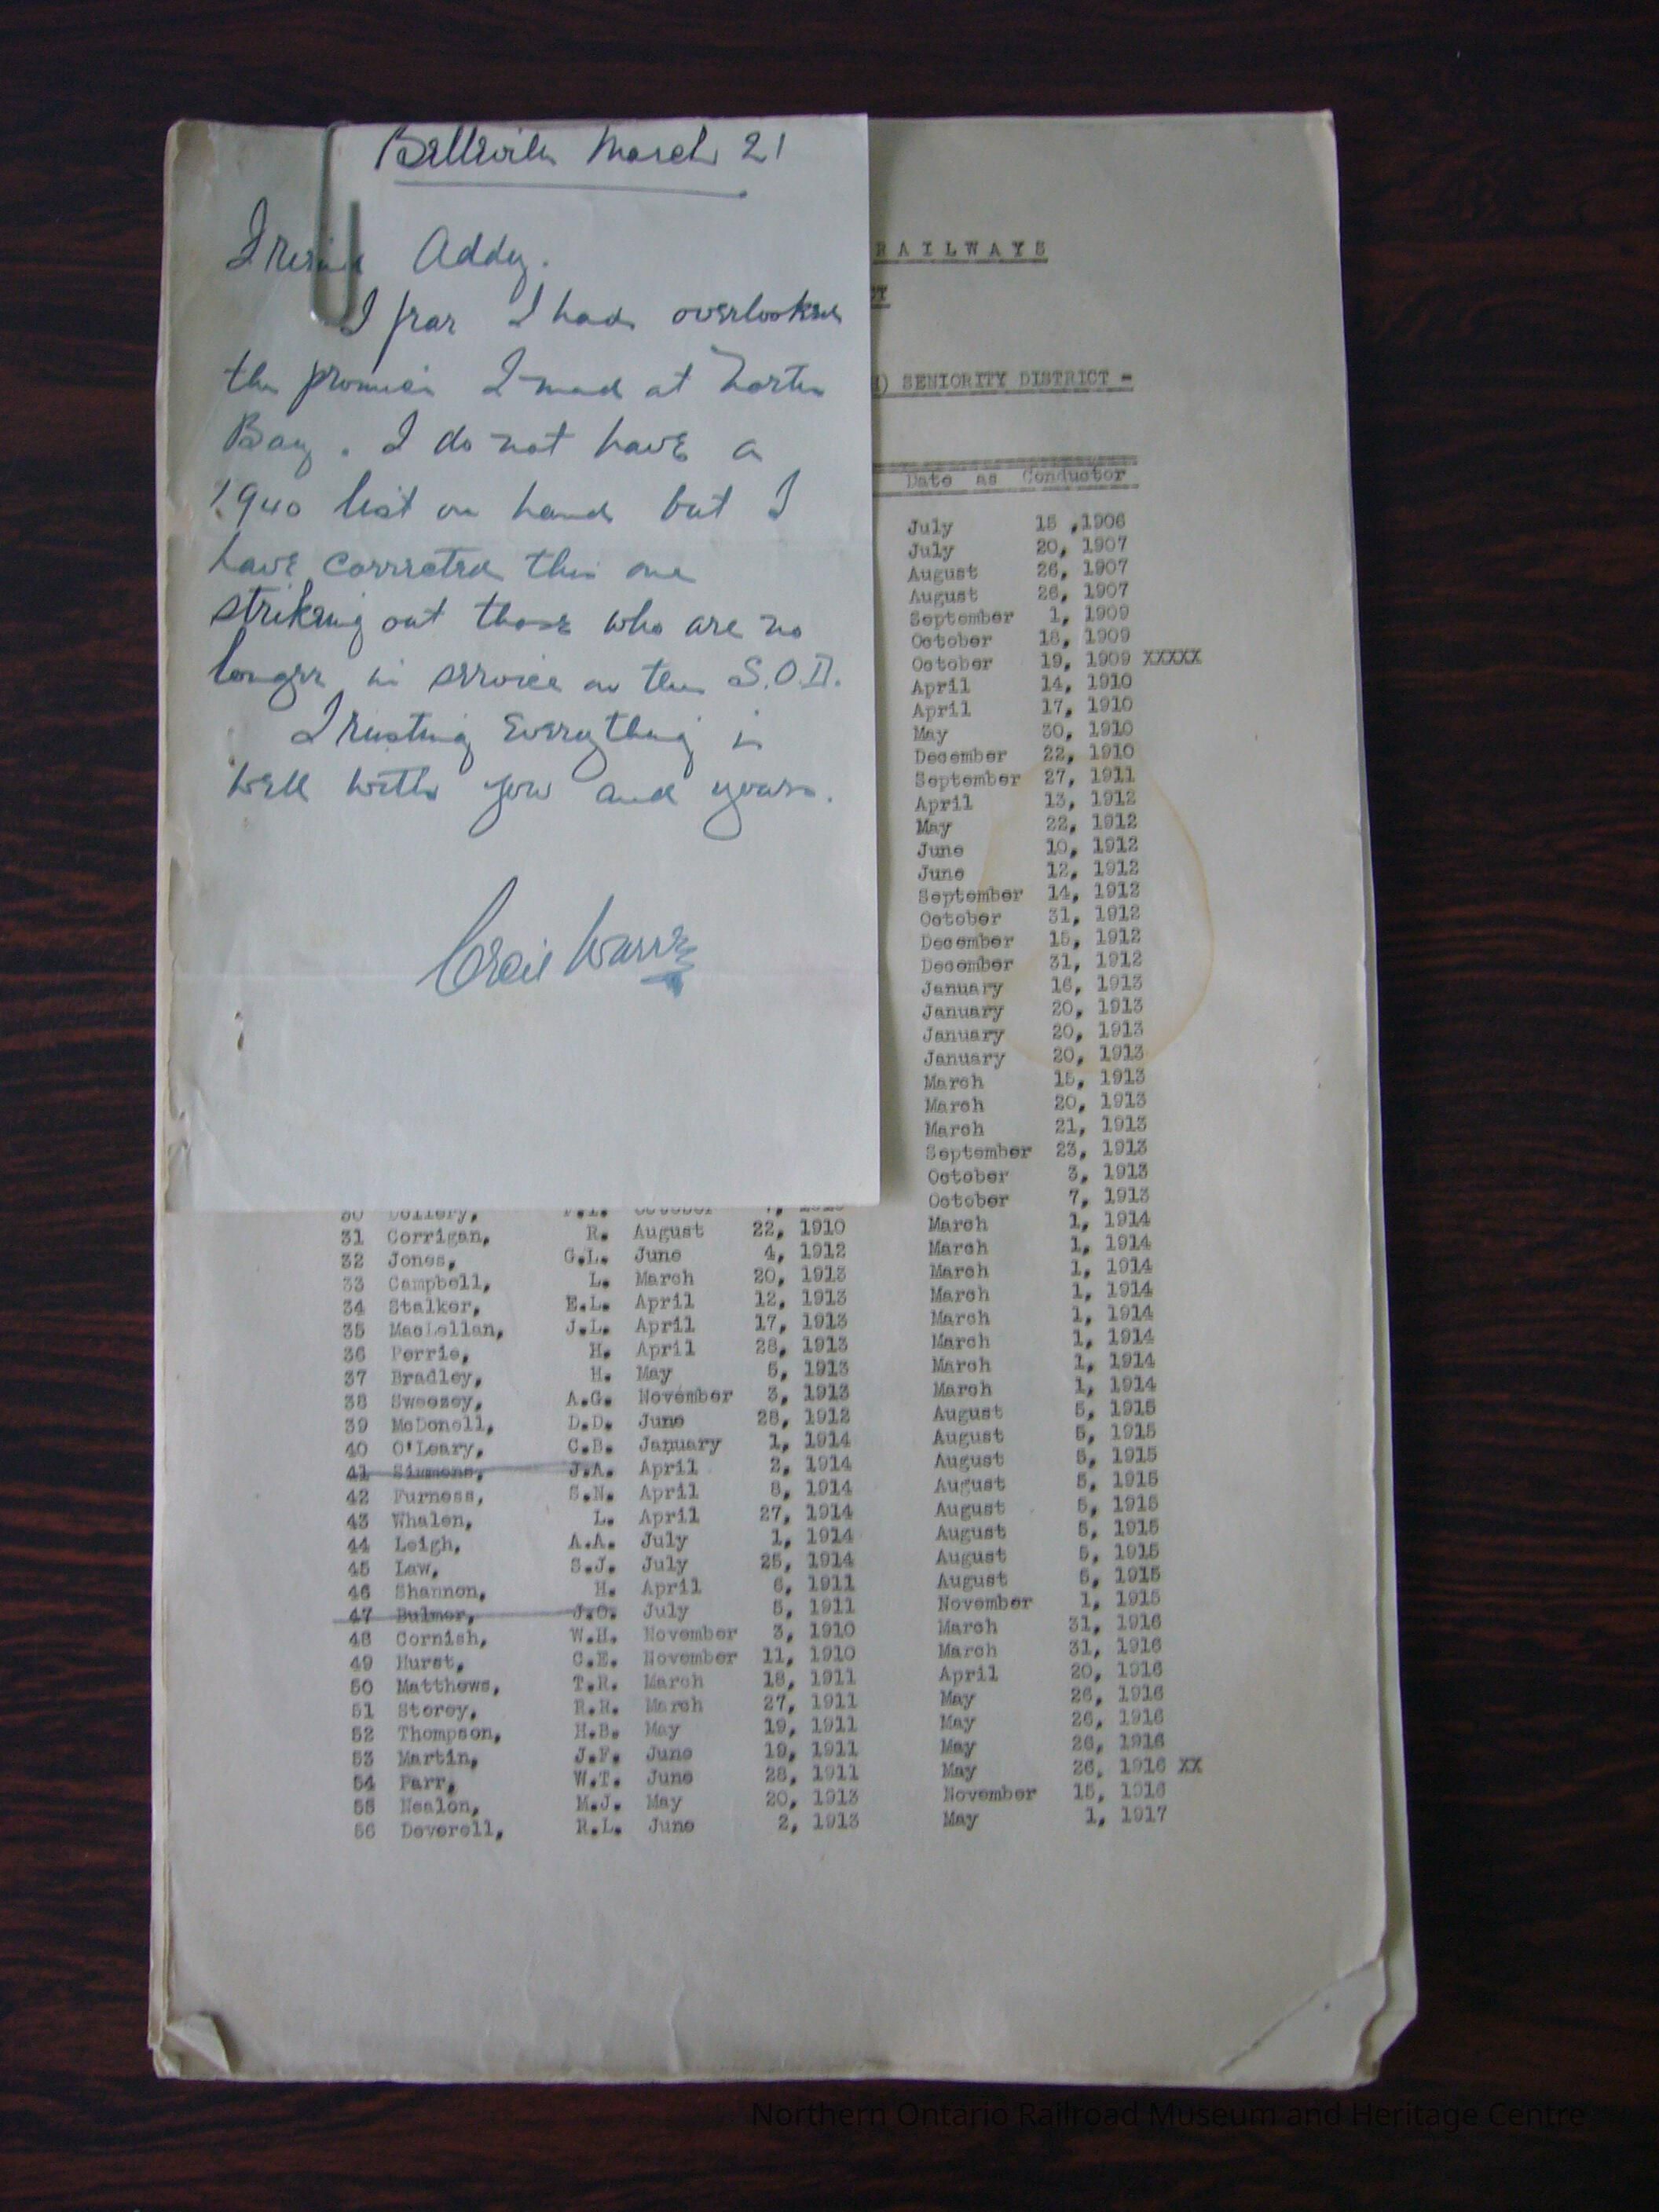 Belleville March 21
Friend Addy.
I fear I had overlooked
the promise I made at North
Bay. I do not have a
1940 list on hand but I
have corrected this one
striking out those who are no
longer in service on this S.O.D.
Trusting Everything is
well with you and yours.
RAILWAYS
SENIORITY DISTRICT -
Date as Conductor
July 15 ,1906
July 20, 1907
August 26, 1907
August 26, 1907
September 1, 1909
October 18, 1909
October 19, 1909 XXXXX
April 14, 1910
April 17, 1910
May 30, 1910
December 22, 1910
September 27, 1911
April 13, 1912
May 22, 1912
June 10, 1912
June 12, 1912
September 14, 1912
October 31, 1912
December 15, 1912
December 31, 1912
January 16, 1913
January 20, 1913
January 20, 1913
January 20, 1913
March 15, 1913
March 20, 1913
March 21, 1913
September 23, 1913
October 3, 1913
30 Dollery, October 7, 1913
31 Corrigan, R. August 22, 1910 March 1, 1914
32 Jones, G.L. June 4, 1912 March 1, 1914
33 Campbell, L. March 20, 1913 March 1, 1914
34 Stalker, E.L. April 12, 1913 March 1, 1914
35 MacLellan, J.L. April 17, 1913 March 1, 1914
36 Perrie, H. April 28, 1913 March 1, 1914
37 Bradley, H. May 5, 1913 March 1, 1914
38 Sweezey, A.G. November 3, 1913 March 1, 1914
39 McDonell, D.D. June 28, 1912 August 5, 1915
40 O'Leary, C.B. January 1, 1914 August 5, 1915
41 Simmons, J.A. April 2, 1914 August 5, 1915
42 Furness, S.N. April 8, 1914 August 5, 1915
43 Whalen, L. April 27, 1914 August 5, 1915
44 Leigh, A.A. July 1, 1914 August 5, 1915
45 Law, S.J. July 25, 1914 August 5, 1915
46 Shannon, H. April 6, 1911 August 5, 1915
47 Bulmer, J.O. July 5, 1911 November 1, 1915
48 Cornish, W.H. November 3, 1910 March 31, 1916
49 Hurst, C.E. November 11, 1910 March 31, 1916
50 Matthews, T.R. March 18, 1911 April 20, 1916
51 Storey, R.R. March 27, 1911 May 26, 1916
52 Thompson, H.B. May 19, 1911 May 26, 1916
53 Martin, J.F. June 19, 1911 May 26, 1916
54 Parr, W.T. June 28, 1911 May 26, 1916 XX
55 Nealon, M.J. May 20, 1913 November 15, 1916
56 Deverell, R.L. June 2, 1913 May 1, 1917
Northern Ontario Railroad Museum and Heritage Centre